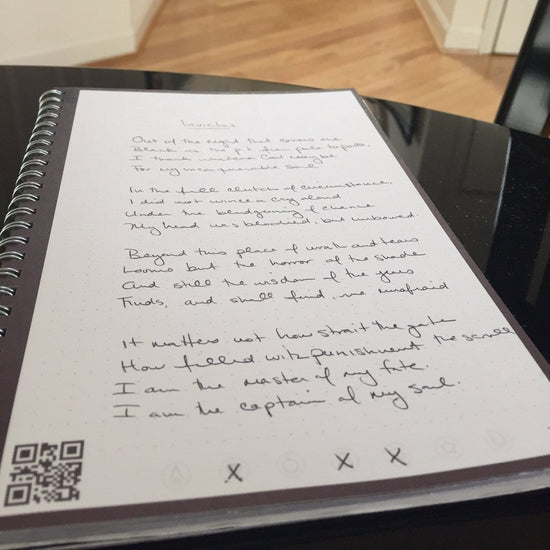 Invictus
Out of the night that covers me
Black as the pit from pole to pole.
I thank whatever God maybe
For my unconquerable soul.
In the full clutch of circumstance,
I did not wince or cry aloud
Under the bludgeoning of chance
My head was bloodied, but unbowed.
Beyond this place of wrath and tears
Looms but the horror of the shade
And still the wisdom of the years
Finds, and shall find, me unafraid
It matters not how strait the gate
How filled with punishment the scroll
I am the master of my fate.
I am the captain of my soul.
X X X